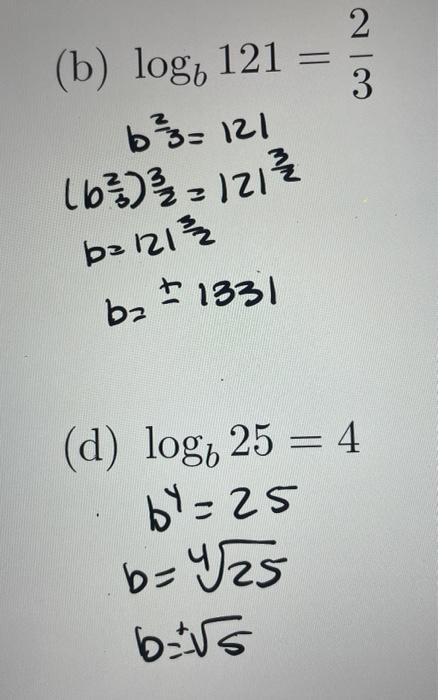 (b) log_b 121 = 2/3
b^(2/3) = 121
(b^(2/3))^(3/2) = 121^(3/2)
b = 121^(3/2)
b = ± 1331
(d) log_b 25 = 4
b^4 = 25
b = ∜25
b = ±√5